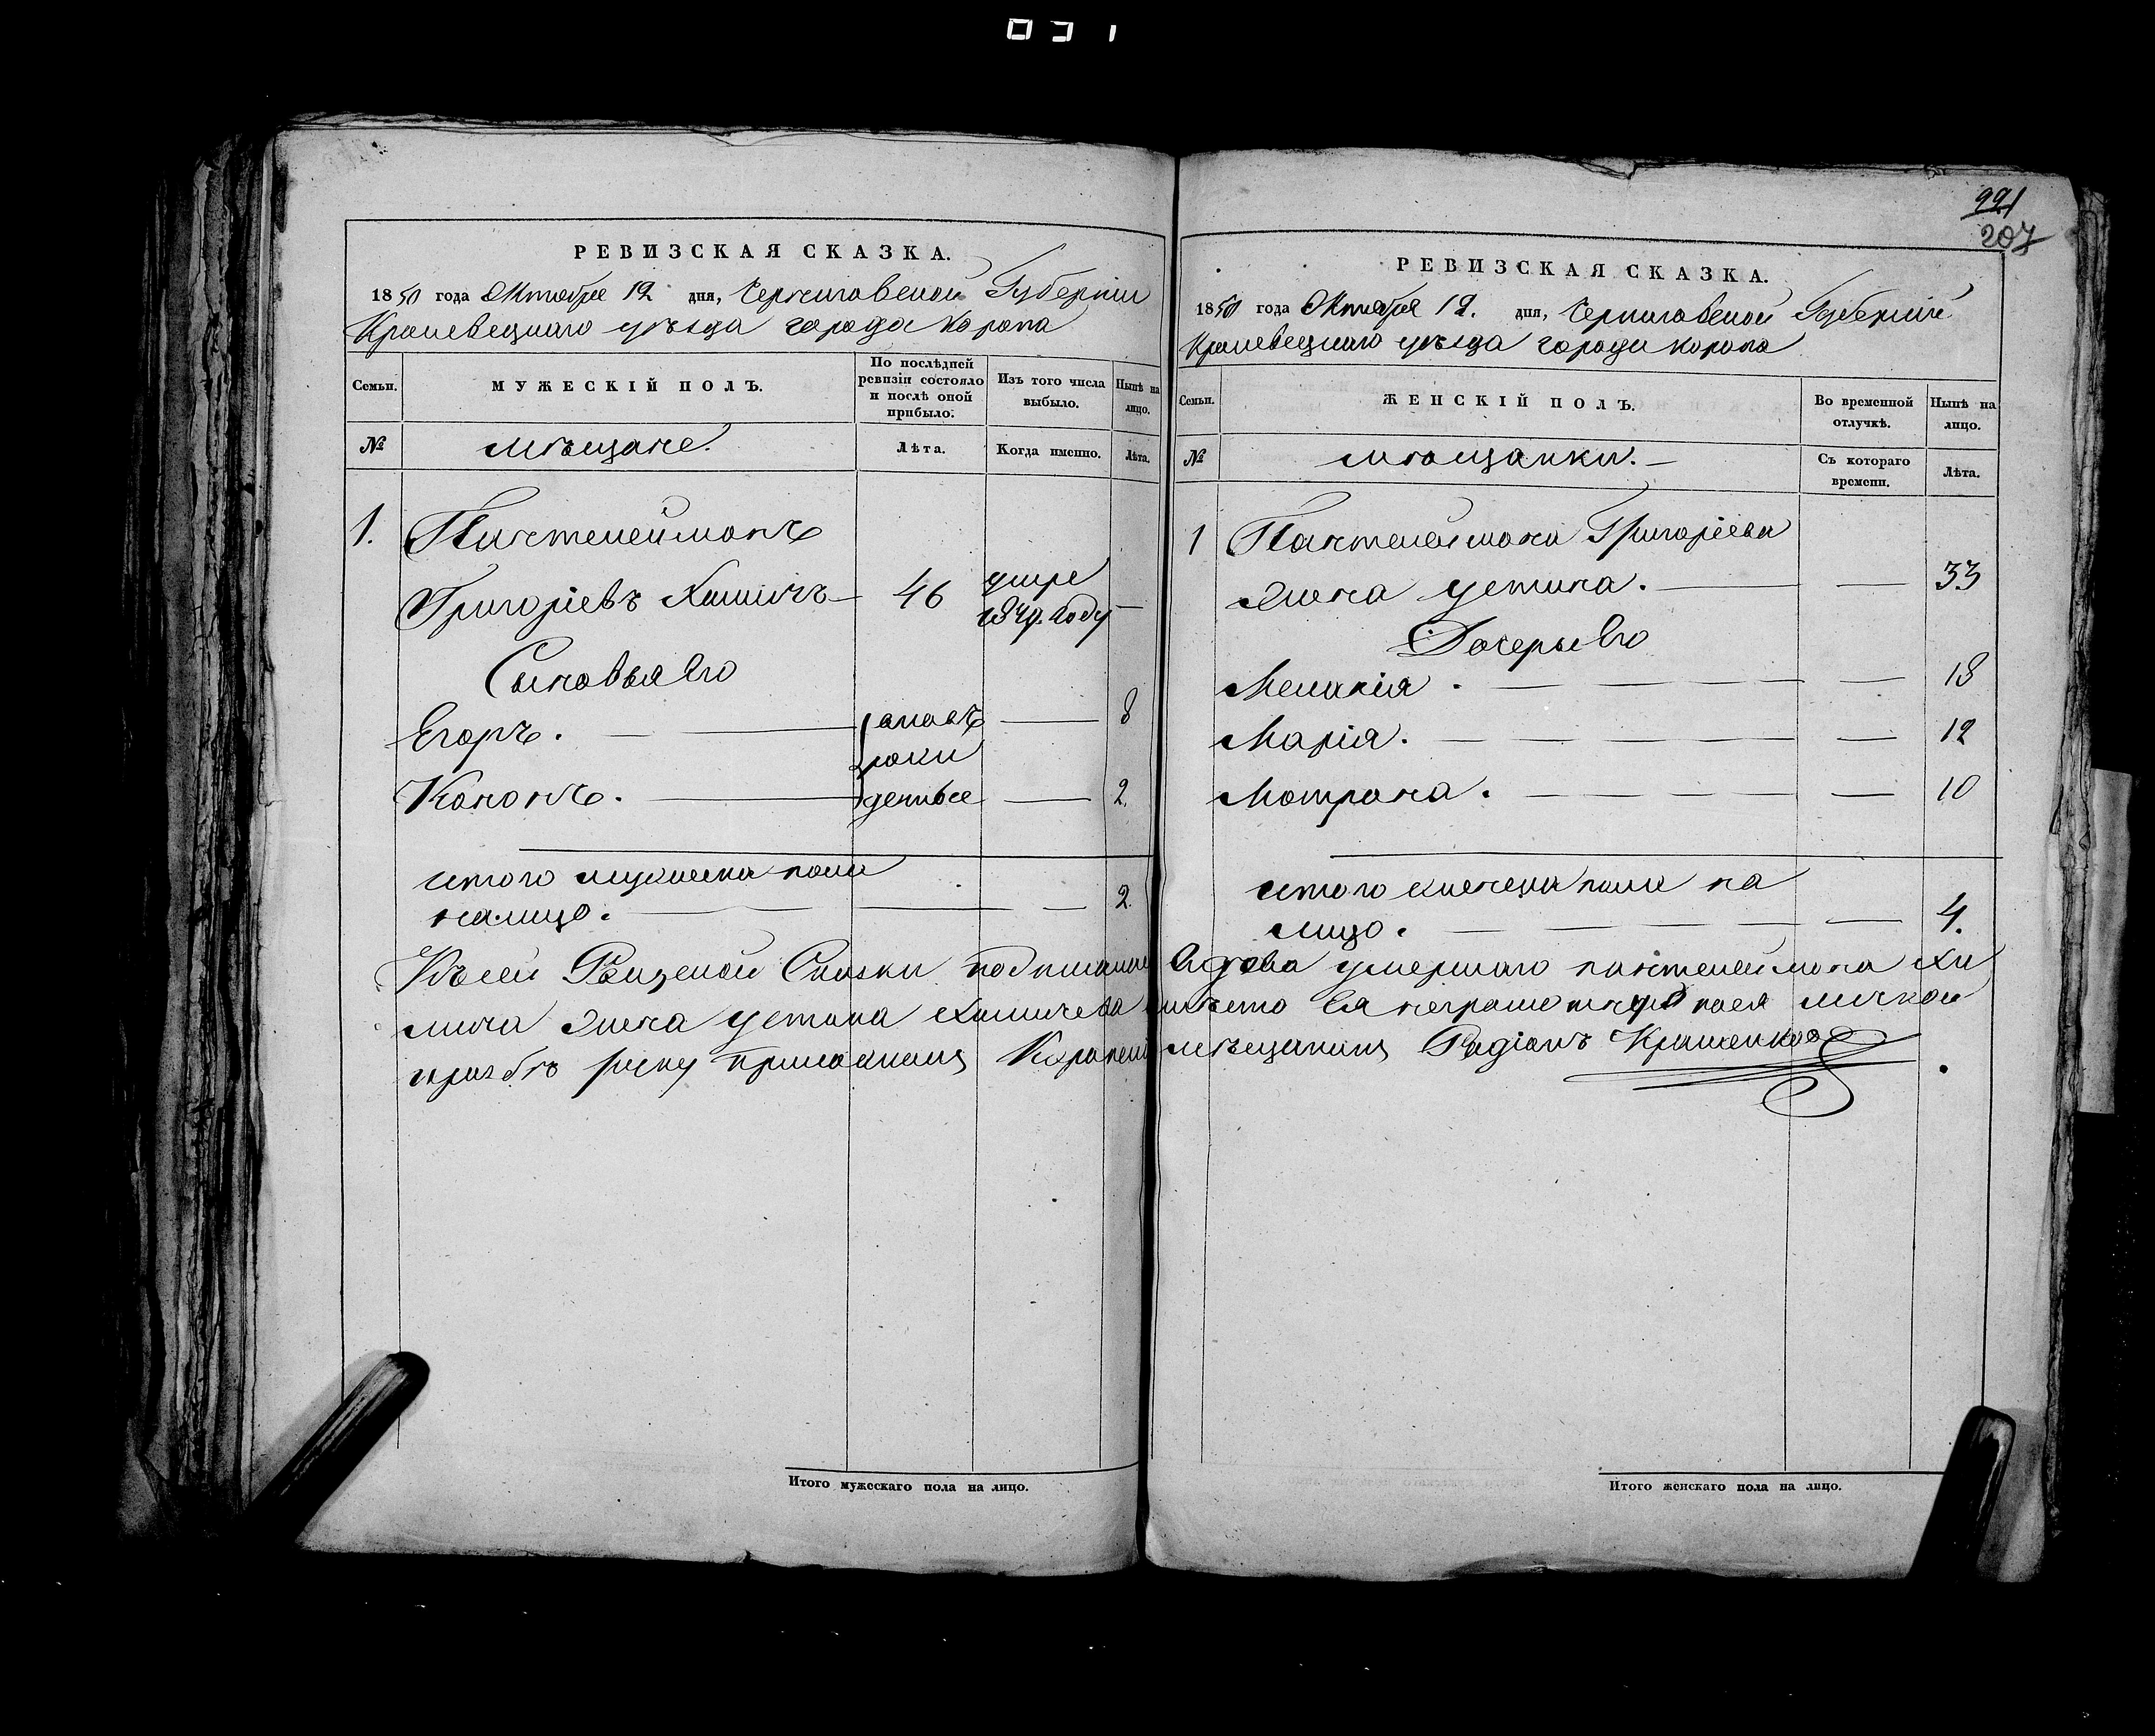 031
991
207
РЕВИЗСКАЯ СКАЗКА.
1850 года Октября 12 дня, Черниговской Губернии
Кролевецкаго уѣзда города Коропа
Семьи. МУЖЕСКІЙ ПОЛЪ. По послѣдней ревизіи состояло и послѣ оной прибыло. Изъ того числа выбыло. Нынѣ на лицо.
№ мѣщане. Лѣта. Когда именно. Лѣта.
1. Пантелеймонъ
Григоріевъ Хилимъ 46 умре 1849. году —
Сыновья Его
Егоръ. — 8
Кононъ. — 2.
итого мужеска пола
налицо. — 2.
РЕВИЗСКАЯ СКАЗКА.
1850 года Октября 12. дня, Черниговской Губерніи
Кролевецкаго уѣзда города Коропа
Семьи. ЖЕНСКІЙ ПОЛЪ. Во временной отлучкѣ. Нынѣ на лицо.
№ мѣщанки. — Съ котораго времени. Лѣта.
1 Пантелеймона Григоріева
жена устина. — — 33
Дочеры Его
Меланія. — — 18
Марія. — — 12
Мотрона. — — 10
итого женска пола на
лицо. — — 4.
Къ сей Сказки вдова умершаго пантелеймона Хи
лича жена устина вмѣсто Ея неграмотной поея личной
прозбѣ руку приложилъ мѣщанинъ Радіонъ
Итого мужескаго пола на лицо.
Итого женскаго пола на лицо.